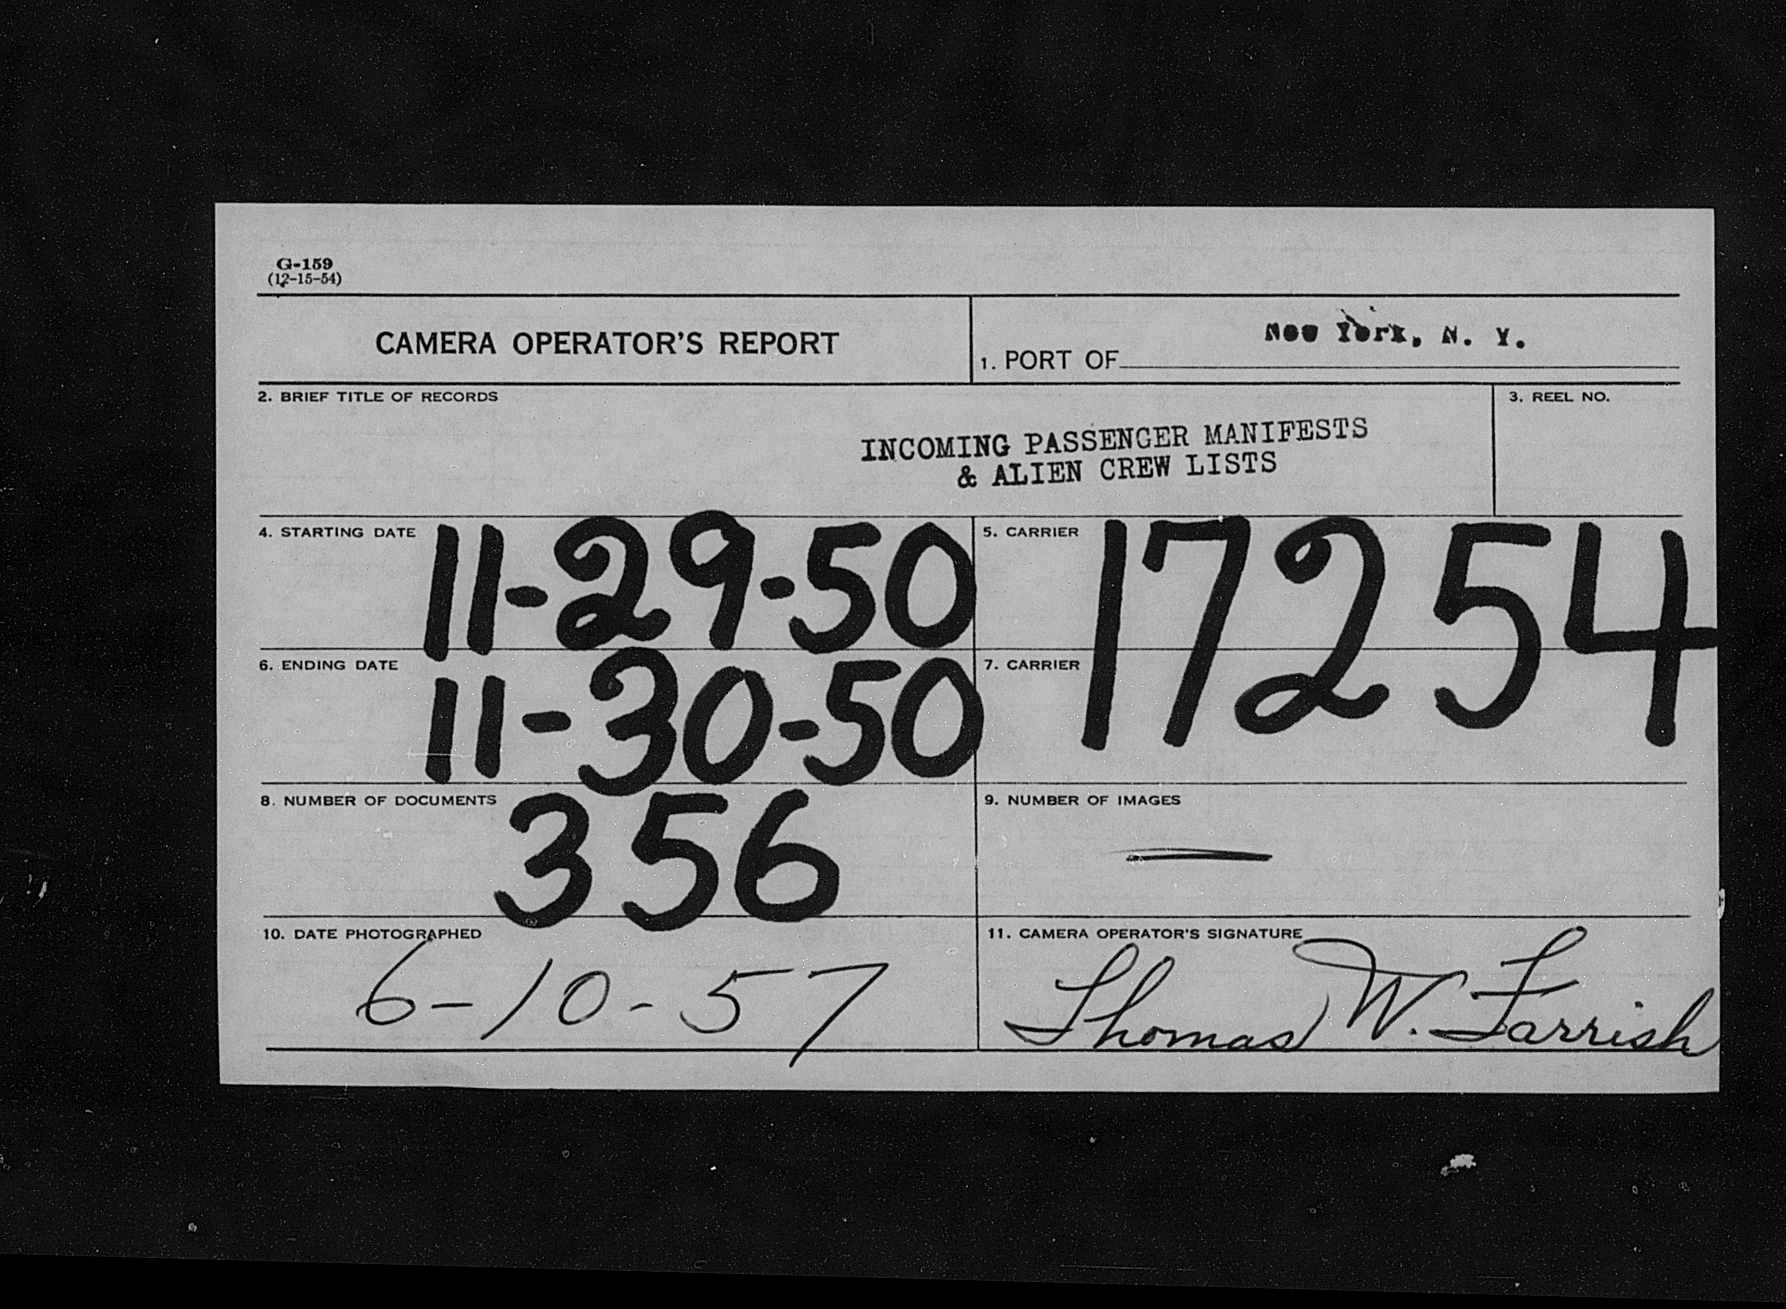 G-159
(12-15-54)
CAMERA OPERATOR'S REPORT
1. PORT OF New York, N. Y.
2. BRIEF TITLE OF RECORDS
INCOMING PASSENGER MANIFESTS
& ALIEN CREW LISTS
3. REEL NO.
4. STARTING DATE 11-29-50
5. CARRIER 17254
6. ENDING DATE 11-30-50
7. CARRIER
8. NUMBER OF DOCUMENTS 356
9. NUMBER OF IMAGES —
10. DATE PHOTOGRAPHED
6-10-57
11. CAMERA OPERATOR'S SIGNATURE
Thomas W. Farrish